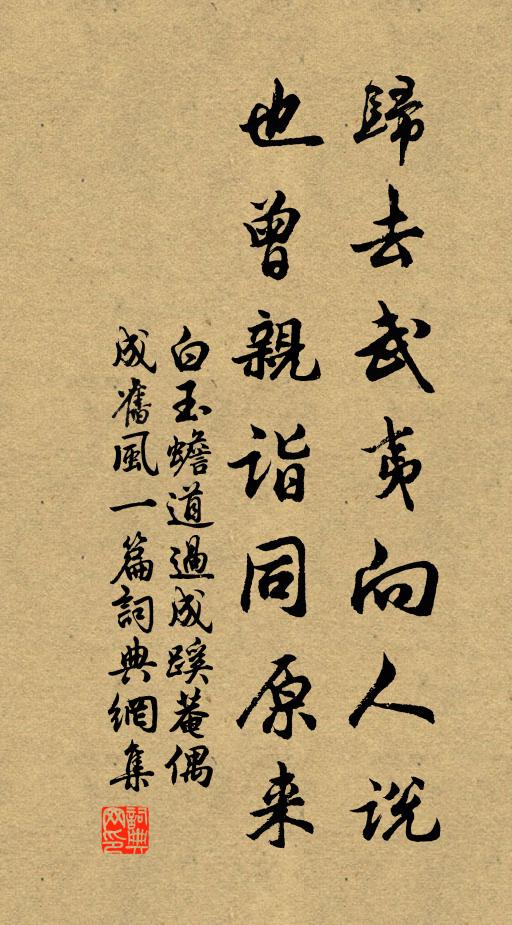 歸去武夷向人說
也曾親詣同原来
白玉蟾道過成蹊菴偶
成舊風一篇詞典網集
詞典网印